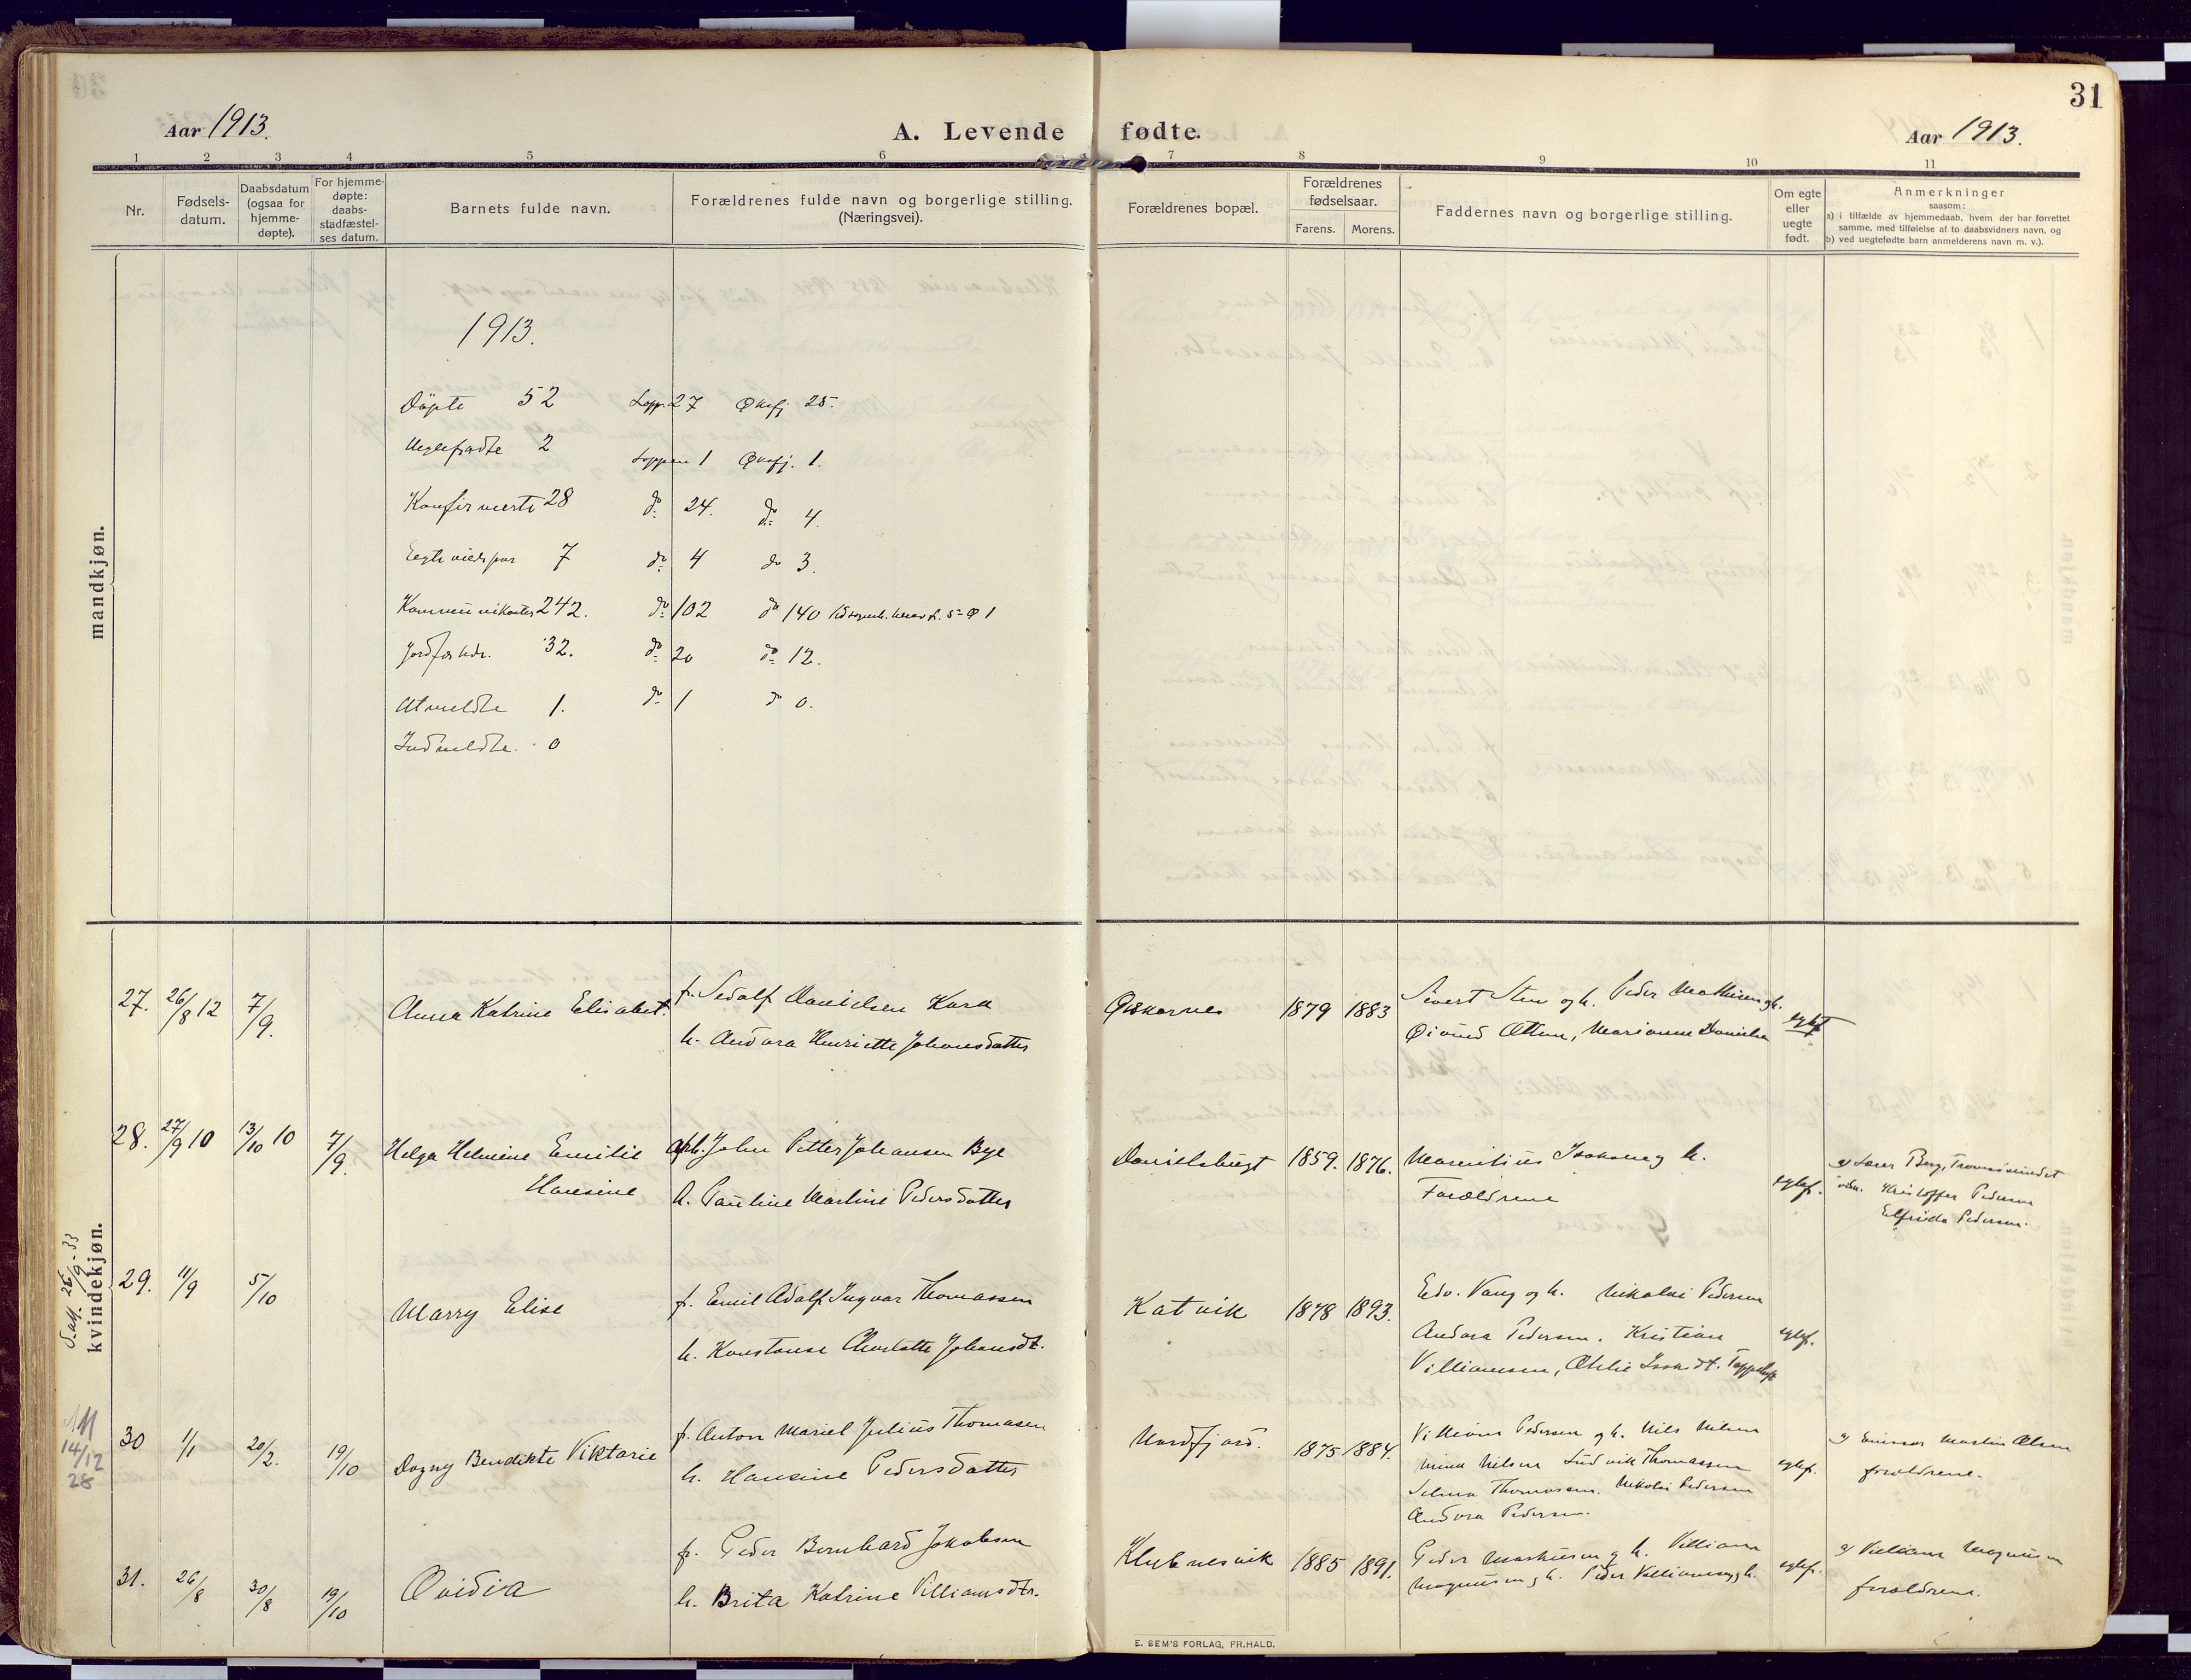 31
Aar 1913.
A. Levende fødte.
Aar 1913.
1 2 3 4 5 6 7 8 9 10 11
Nr.
Fødsels-
datum.
Daabsdatum
(ogsaa for
hjemme-
døpte).
For hjemme-
døpte:
daabs-
stadfæstel-
ses datum.
Barnets fulde navn.
Forældrenes fulde navn og borgerlige stilling.
(Næringsvei).
Forældrenes bopæl.
Forældrenes
fødselsaar.
Farens. Morens.
Faddernes navn og borgerlige stilling.
Om egte
eller
uegte
født.
Anmerkninger
saasom:
a) i tilfælde av hjemmedaab, hvem der har forrettet
samme, med tilføielse af to daabsvidners navn, og
b) ved uegtefødte barn anmelderens navn m. v.).
mandkjøn.
1913.
Døpte 52 Lopp. 27 Øksfj 25.
Uegtefødte 2 Loppen 1 Øksfj. 1.
Konfirmerte 28 do 24. do 4.
Egteviede par 7 do 4 do 3.
Kommunikanter 242. do 102 do 140
Jordfæstede. 32. do 20 do 12.
Utmeldte 1. do 1 do 0.
Indmeldte. 0
kvindekjøn.
27. 26/8 12 7/9. Anna Katrine Elisabet. f. Sedolf Danielsen Kara
h. Andora Henriette Johansdatter
Øksfjord 1879 1883 Sivert Sten og h. Peder Mathisen og h.
Øivind Olsen, Marianne Danielsen
egtef.
28. 27/9 10 13/10 10 7/9. Helga Helmine Emilie
Hansine
arb. John Petter Johansen Bye
h. Pauline Martine Pedersdatter
Danielsbugt 1859. 1876. Mauritius Isaksen og h.
Forældrene
egtef.
a) Lærer Berg, Tromsøsundet
vidn. Kristoffer Pedersen
Elfrida Pedersen.
Datt. 26/9-33
29. 11/9 5/10 Marry Elise
f. Emil Adolf Ingvar Thomassen
h. Konstanse Charlotte Johansdt.
Katvik 1878 1893. Edv. Vang og h. Nikolai Pedersen
Andora Pedersen. Kristian
Villiamsen, Othlie Isakdt.
egtef.
14/12
28
30 1/1 20/2. 19/10 Dagny Bendikte Viktorie
f. Anton Mariel Julius Thomasen
h. Hansine Pedersdatter
Nordfjord. 1875 1884. Villiam Pedersen og h. Nils Nilsen
Mina Nilsen Ludvik Thomassen
Selma Thomassen. Nikolai Pedersen
Andora Pedersen.
egtef.
a) Emissær Martin Olsen
forældrene.
31. 26/8 30/8 19/10 Ovidia
f. Peder Bernhard Jakobsen
h. Brita Katrine Villiamsdtr.
Klubnesvik 1885 1891. Peder Markussen og h. Villiam
Magnussen og h. Peder Villiamsen og h.
egtef.
a) Villiam Magnussen
forældrene.
E. SEM'S FORLAG, FR.HALD.